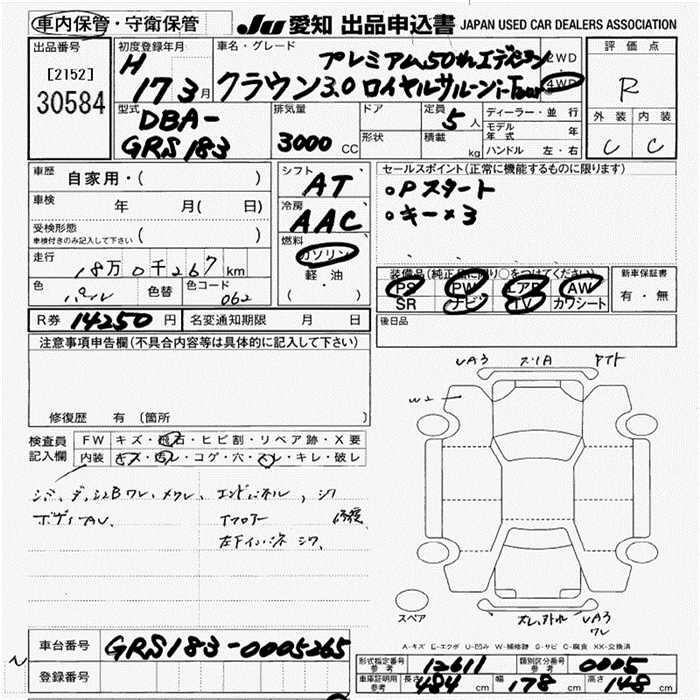 車内保管・守衛保管 JU 愛知 出品申込書 JAPAN USED CAR DEALERS ASSOCIATION
出品番号 初度登録年月 車名・グレード 評価点
[2152] H 17 3月 プレミアム50thエディション 2WD
30584 クラウン3.0 ロイヤルサルーンi-Four 4WD R
型式 排気量 ドア 定員 ディーラー・並行 外装 内装
DBA- 5人 モデル年式 年
GRS183 3000 CC 形状 積載 kg ハンドル 左・右 C C
車歴 自家用・( ) シフト AT セールスポイント(正常に機能するものに限ります)
車検 年 月( 日) 冷房 AAC ○Pスタート
受検形態 ( ) ○キー×3
車検付きのみ記入して下さい 燃料 ガソリン
走行 18万0千267km 軽油 装備品(純正品に限り○をつけてください) 新車保証書
色 パール 色替 色コード 062 (・) PS PW エアB AW 有・無
SR ナビ TV カワシート
R券 14250円 名変通知期限 月 日 後日品
注意事項申告欄(不具合内容等は具体的に記入して下さい)
UA3
修復歴 有 〔箇所
検査員 FW キズ・飛石・ヒビ割・リペア跡・X要
記入欄 内装 キズ・汚レ・コゲ・穴・スレ・キレ・破レ
スペア
UA3
A-キズ E-エクボ U-凹み W-補修跡 S-サビ C-腐食 XX-交換済
車台番号 GRS183-0005265
登録番号
形式指定番号 参考 12611 類別区分番号 参考 0005
車庫証明用 参考 長さ 484cm 幅 178cm 高さ 148cm